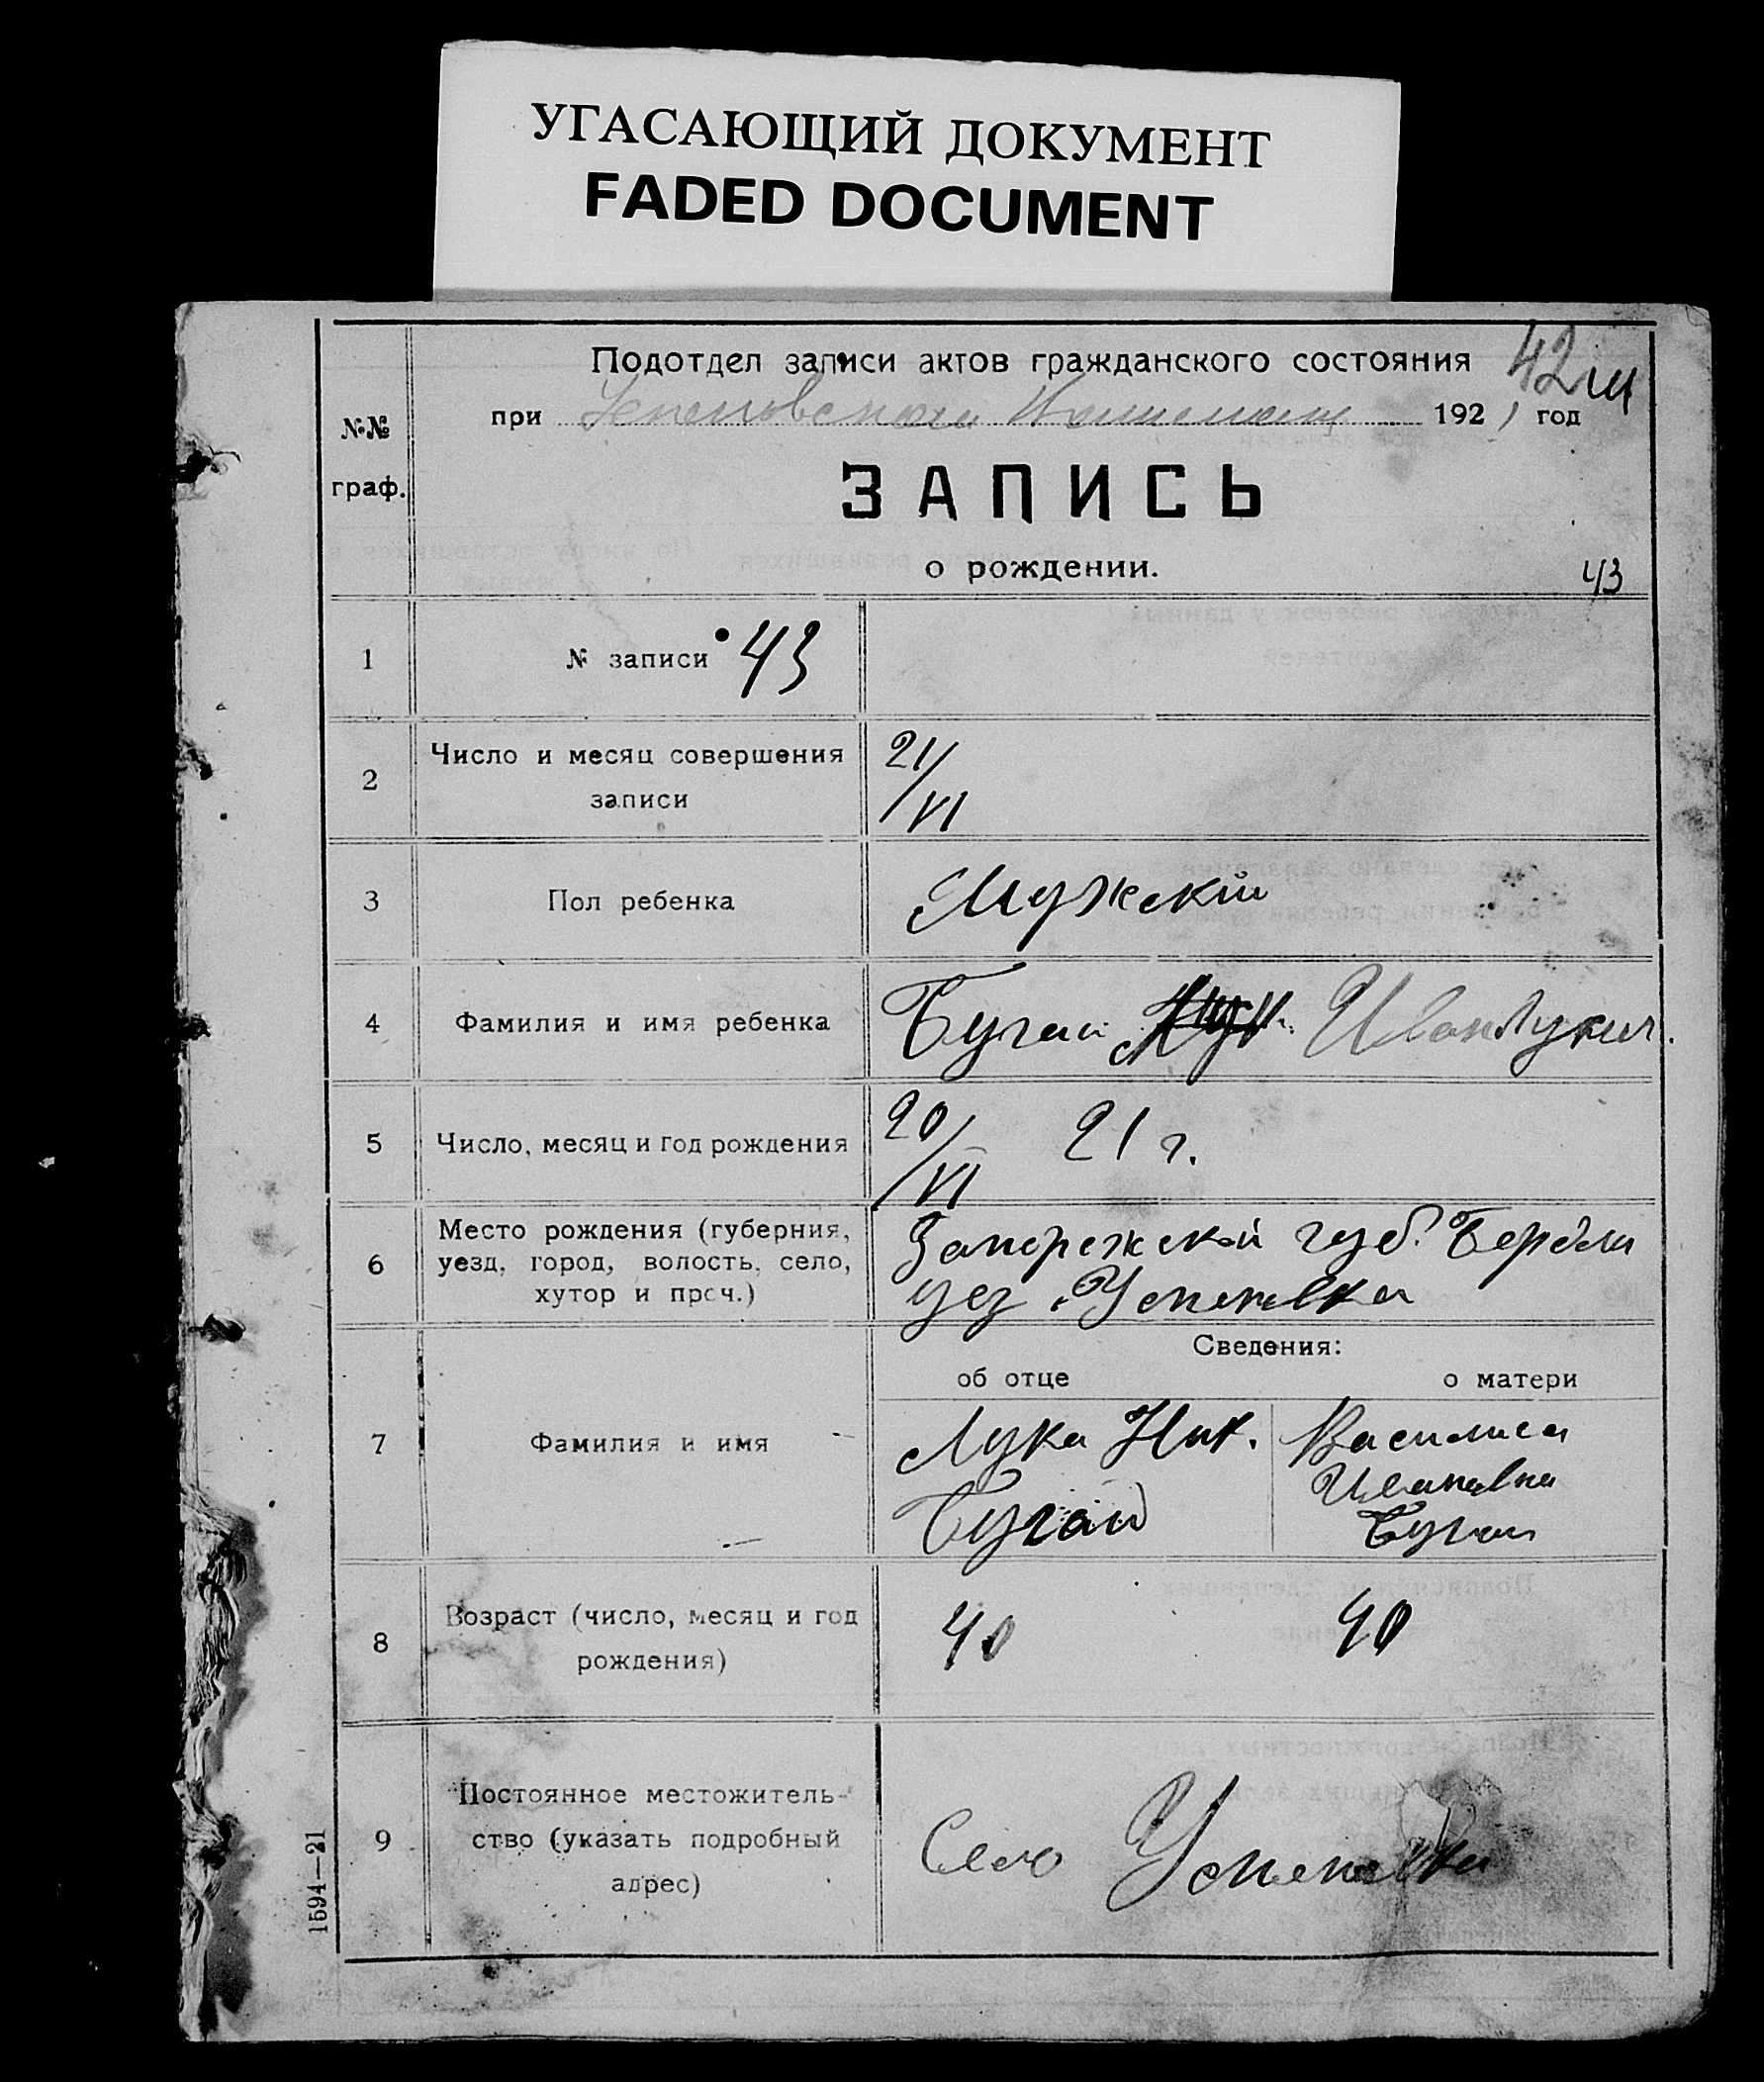 УГАСАЮЩИЙ ДОКУМЕНТ
FADED DOCUMENT
Подотдел записи актов гражданского состояния 42
при 1921 год
№№
граф.
ЗАПИСЬ
о рождении.
43
1 № записи 43
2 Число и месяц совершения
записи
21/VI
3 Пол ребенка Мужскiй
4 Фамилия и имя ребенка Бугай Иван Лукич.
5 Число, месяц и год рождения 20/VI 21 г.
6 Место рождения (губерния,
уезд, город, волость, село,
хутор и проч.)
Запорежской губ. Бердян
уез. Успеновка
Сведения:
об отце о матери
7 Фамилия и имя
Лука Ник.
Бугай
Василиса
Ивановна
Бугай
8 Возраст (число, месяц и год
рождения)
40 40
9 Постоянное местожитель-
ство (указать подробный
адрес)
Село Успеновка
1594—21